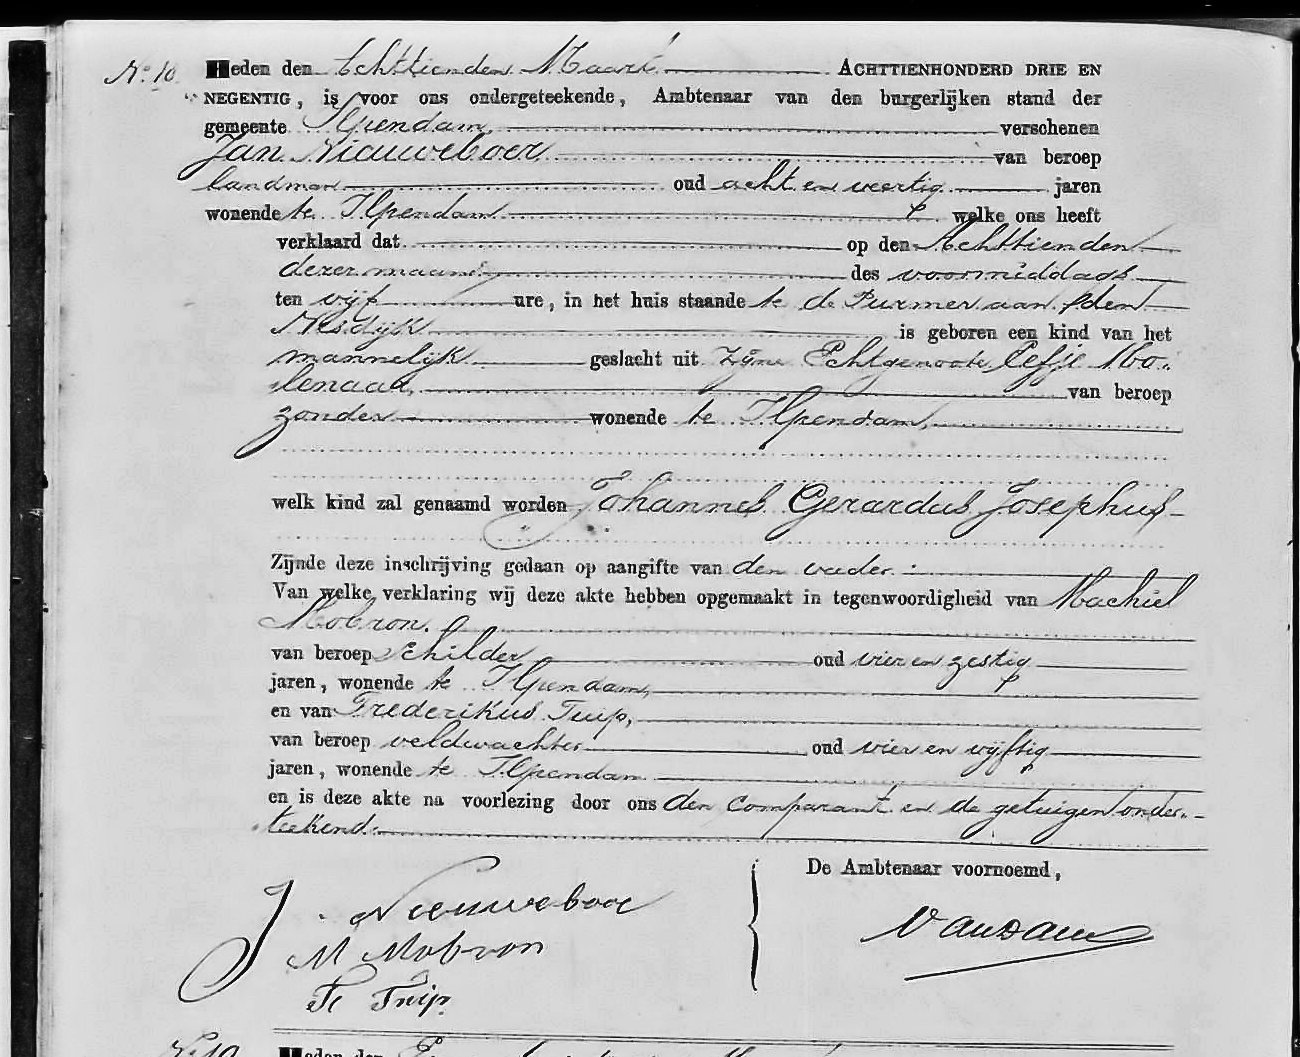 No. 18 Heden den Achttienden Maart ACHTTIENHONDERD DRIE EN
NEGENTIG, is voor ons ondergeteekende, Ambtenaar van den burgerlijken stand der
gemeente Ilpendam, verschenen
Jan Nieuweboer, van beroep
landman oud acht en veertig jaren
wonende te Ilpendam welke ons heeft
verklaard dat op den Achttienden
dezer maand des voormiddags
ten vijf ure, in het huis staande te de Purmer aan den
Nesdijk is geboren een kind van het
mannelijk geslacht uit zijne Echtgenoote Eefje Mo-
lenaar, van beroep
zonder wonende te Ilpendam,
welk kind zal genaamd worden Johannes Gerardus Josephus
Zijnde deze inschrijving gedaan op aangifte van den vader.
Van welke verklaring wij deze akte hebben opgemaakt in tegenwoordigheid van Machiel
Mobron,
van beroep Schilder oud vier en zestig
jaren, wonende te Ilpendam,
en van Frederikus Tuip,
van beroep veldwachter oud vier en vijftig
jaren, wonende te Ilpendam
en is deze akte na voorlezing door ons den comparant en de getuigen onder-
teekend.
De Ambtenaar voornoemd,
J. Nieuweboer
van Dam
M Mobron
Fr Tuip.
No. 19 Heden den